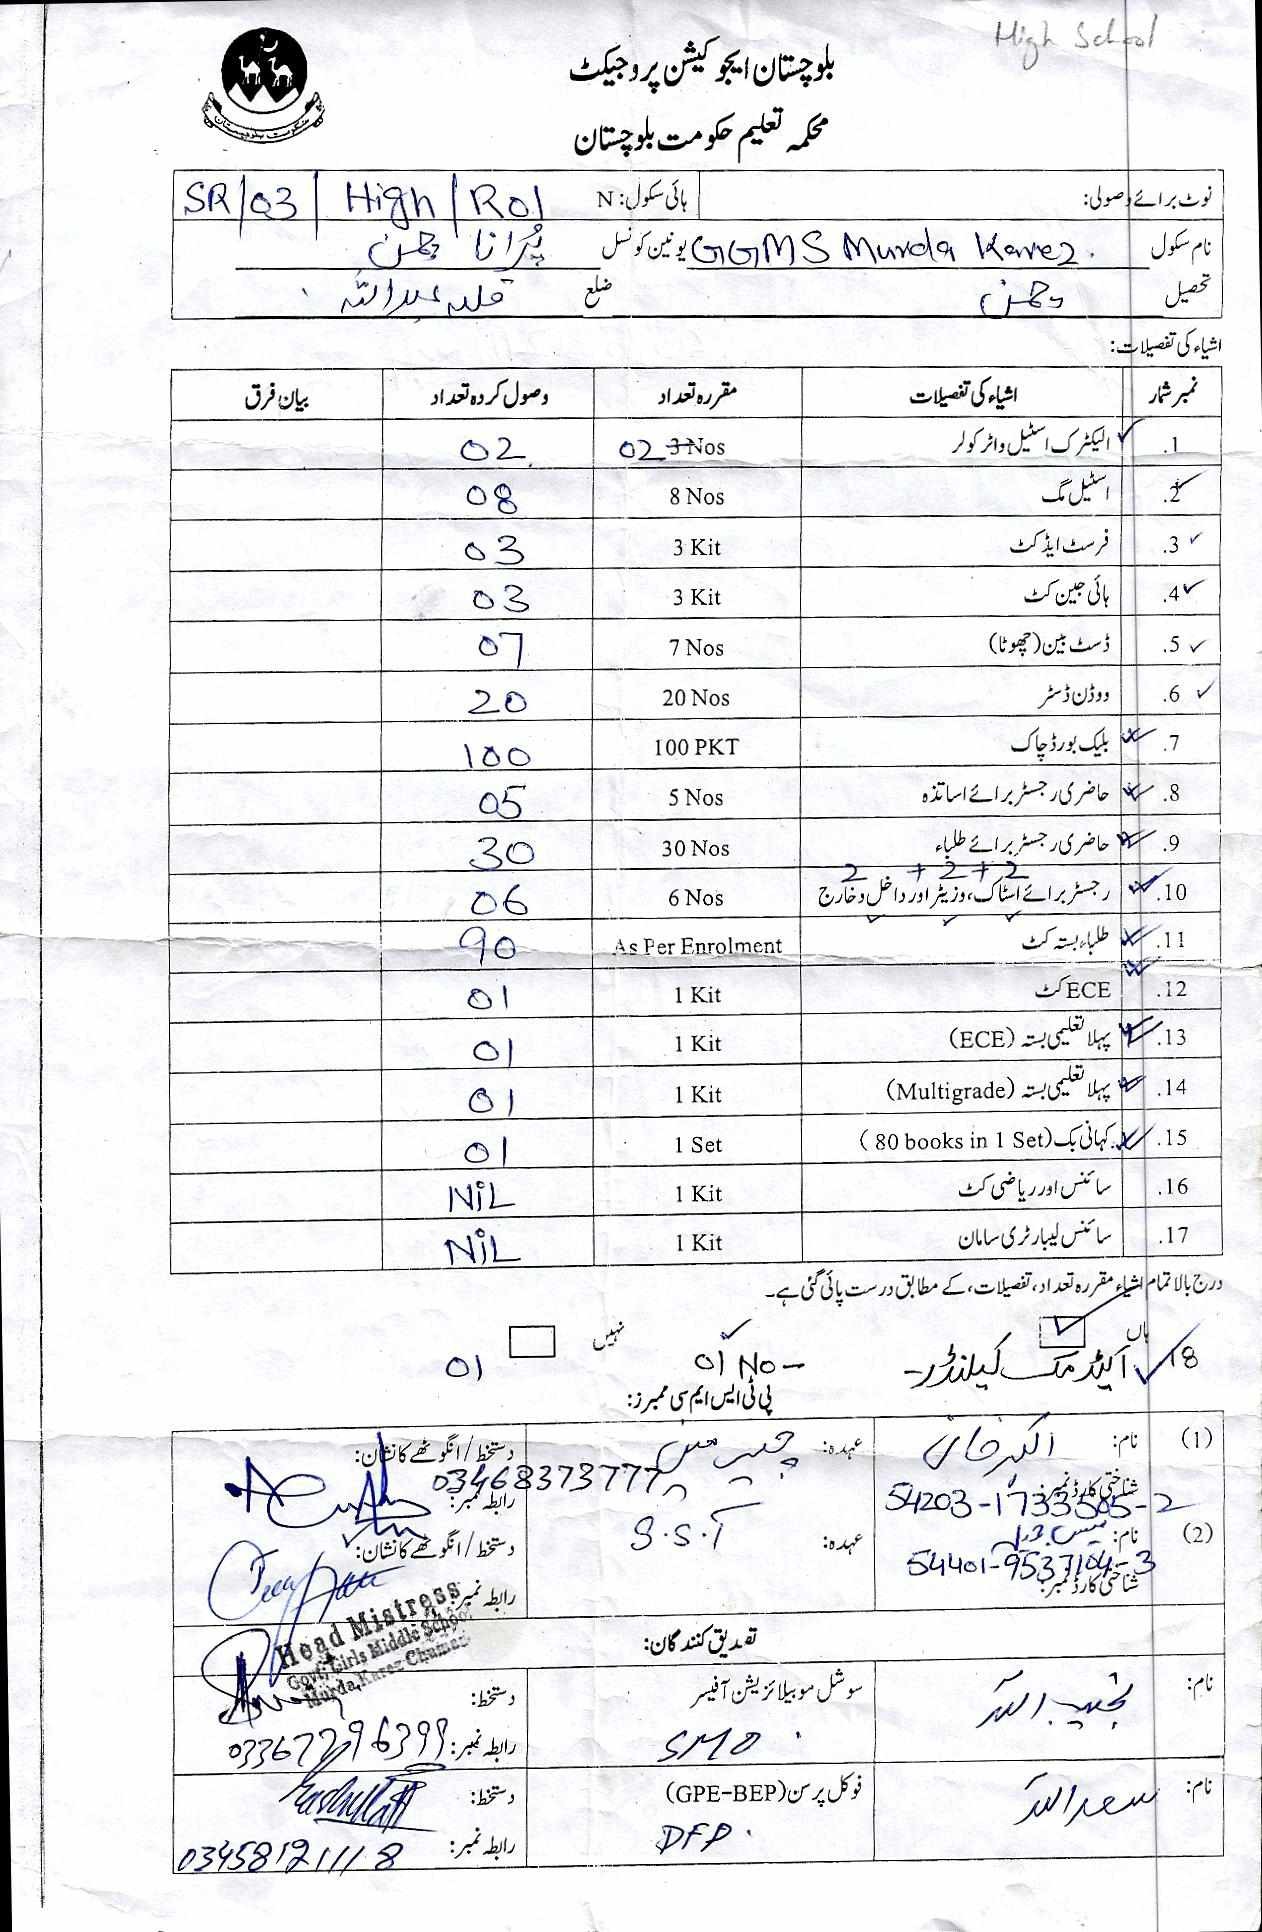 High School
بلوچستان ایجوکیشن پروجیکٹ
محکمہ تعلیم حکومت بلوچستان
نوٹ برائے وصولی: ہائی سکول: N SR/03/High/R01
نام سکول GGMS Murda Karez. یونین کونسل پُرانا چمن
تحصیل چمن ضلع قلعہ عبداللہ
اشیاء کی تفصیلات:
نمبر شمار اشیاء کی تفصیلات مقررہ تعداد وصول کردہ تعداد بیان فرق
1. الیکٹرک اسٹیل واٹر کولر 02 3 Nos 02
2. اسٹیل مگ 8 Nos 08
3. فرسٹ ایڈ کٹ 3 Kit 03
4. ہائی جین کٹ 3 Kit 03
5. ڈسٹ بین (چھوٹا) 7 Nos 07
6. ووڈن ڈسٹر 20 Nos 20
7. بلیک بورڈ چاک 100 PKT 100
8. حاضری رجسٹر برائے اساتذہ 5 Nos 05
9. حاضری رجسٹر برائے طلباء 30 Nos 30
2 + 2 + 2
10. رجسٹر برائے اسٹاک، وزیٹر اور داخل و خارج 6 Nos 06
11. طلباء بستہ کٹ As Per Enrolment 90
12. ECE کٹ 1 Kit 01
13. پہلا تعلیمی بستہ (ECE) 1 Kit 01
14. پہلا تعلیمی بستہ (Multigrade) 1 Kit 01
15. کہانی بک (80 books in 1 Set) 1 Set 01
16. سائنس اور ریاضی کٹ 1 Kit NiL
17. سائنس لیبارٹری سامان 1 Kit NiL
درج بالا تمام اشیاء مقررہ تعداد، تفصیلات، کے مطابق درست پائی گئی ہے۔
ہاں نہیں
18 اکیڈمک کیلنڈر - 01 No - 01
پی ٹی ایس ایم سی ممبرز:
(1) نام: اکبر خان عہدہ: چیئرمین دستخط/انگوٹھے کا نشان:
شناختی کارڈ نمبر: 54203-1733585-2 رابطہ نمبر: 03468373777
(2) نام: عہدہ: دستخط/انگوٹھے کا نشان:
شناختی کارڈ نمبر: 54401-9537104-3 رابطہ نمبر:
Head Mistress
Govt: Girls Middle School
Murda Karez Chaman
تصدیق کنندگان:
نام: نجیب اللہ سوشل موبیلائزیشن آفیسر دستخط:
SMO رابطہ نمبر:
نام: سعداللہ فوکل پرسن (GPE-BEP) دستخط:
DFP. رابطہ نمبر: 03458121118